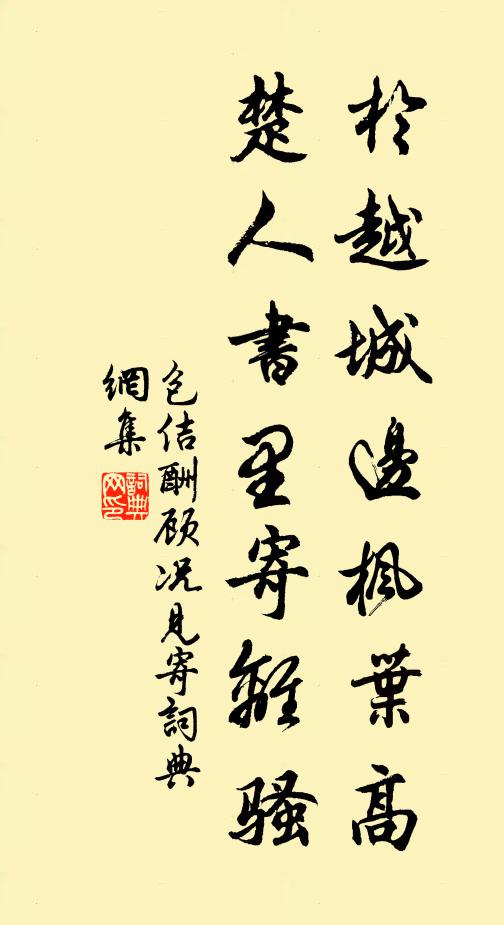 於越城邊楓葉高
楚人書里寄離騷
包佶酬顾况见寄詞典
網集
詞典
网印